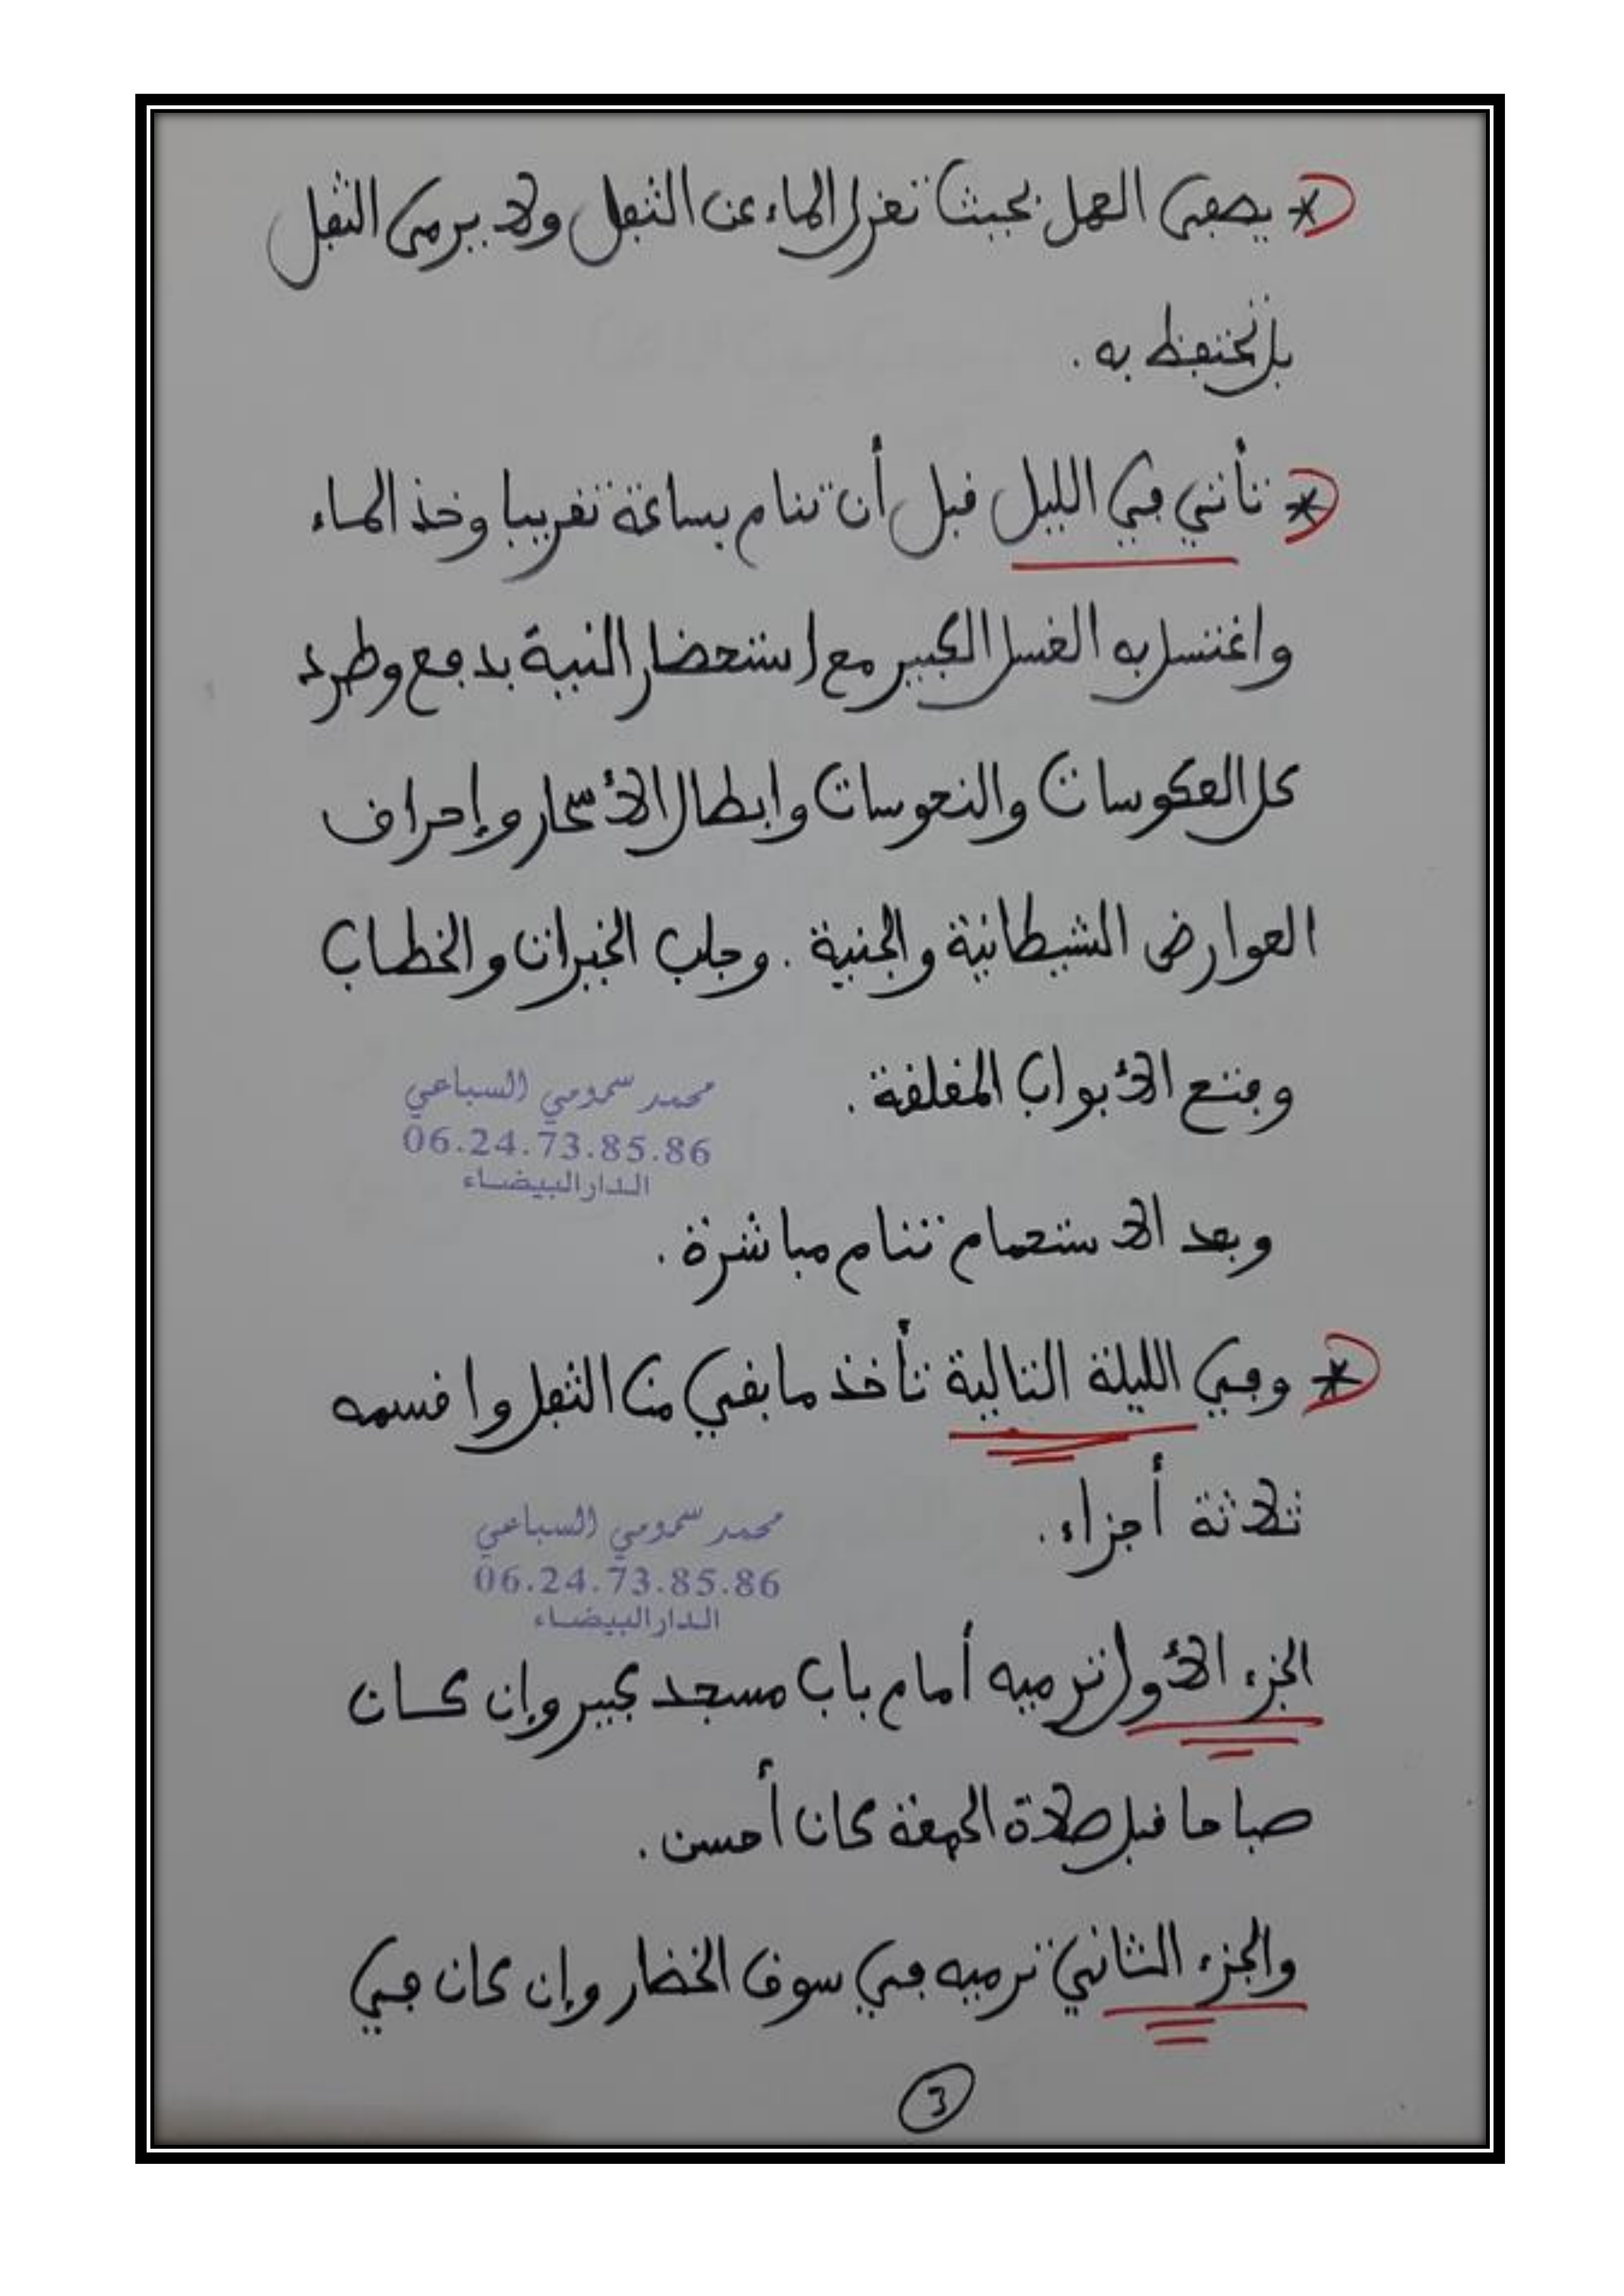 * يصفى العمل بحيث تعزل الماء عن الثفل ولا يرمى الثفل
بل تحتفظ به .
* تأتي في الليل قبل أن تنام بساعة تقريبا وخذ الماء
واغتسل به الغسل الكبير مع استحضار النية بدفع وطرد
كل العكوسات والنحوسات وابطال الأسحار وإحراق
العوارض الشيطانية والجنية . وجلب الخيرات والخطاب
وفتح الأبواب المغلقة .
محمد سمومي السباعي
06.24.73.85.86
الدار البيضاء
وبعد الاستحمام تنام مباشرة .
* وفي الليلة التالية تأخذ ما بقي من الثفل واقسمه
ثلاثة أجزاء .
محمد سمومي السباعي
06.24.73.85.86
الدار البيضاء
الجزء الأول ترميه أمام باب مسجد كبير وإن كان
صباحا قبل صلاة الجمعة كان أحسن .
والجزء الثاني ترميه في سوق الخضار وإن كان في
3